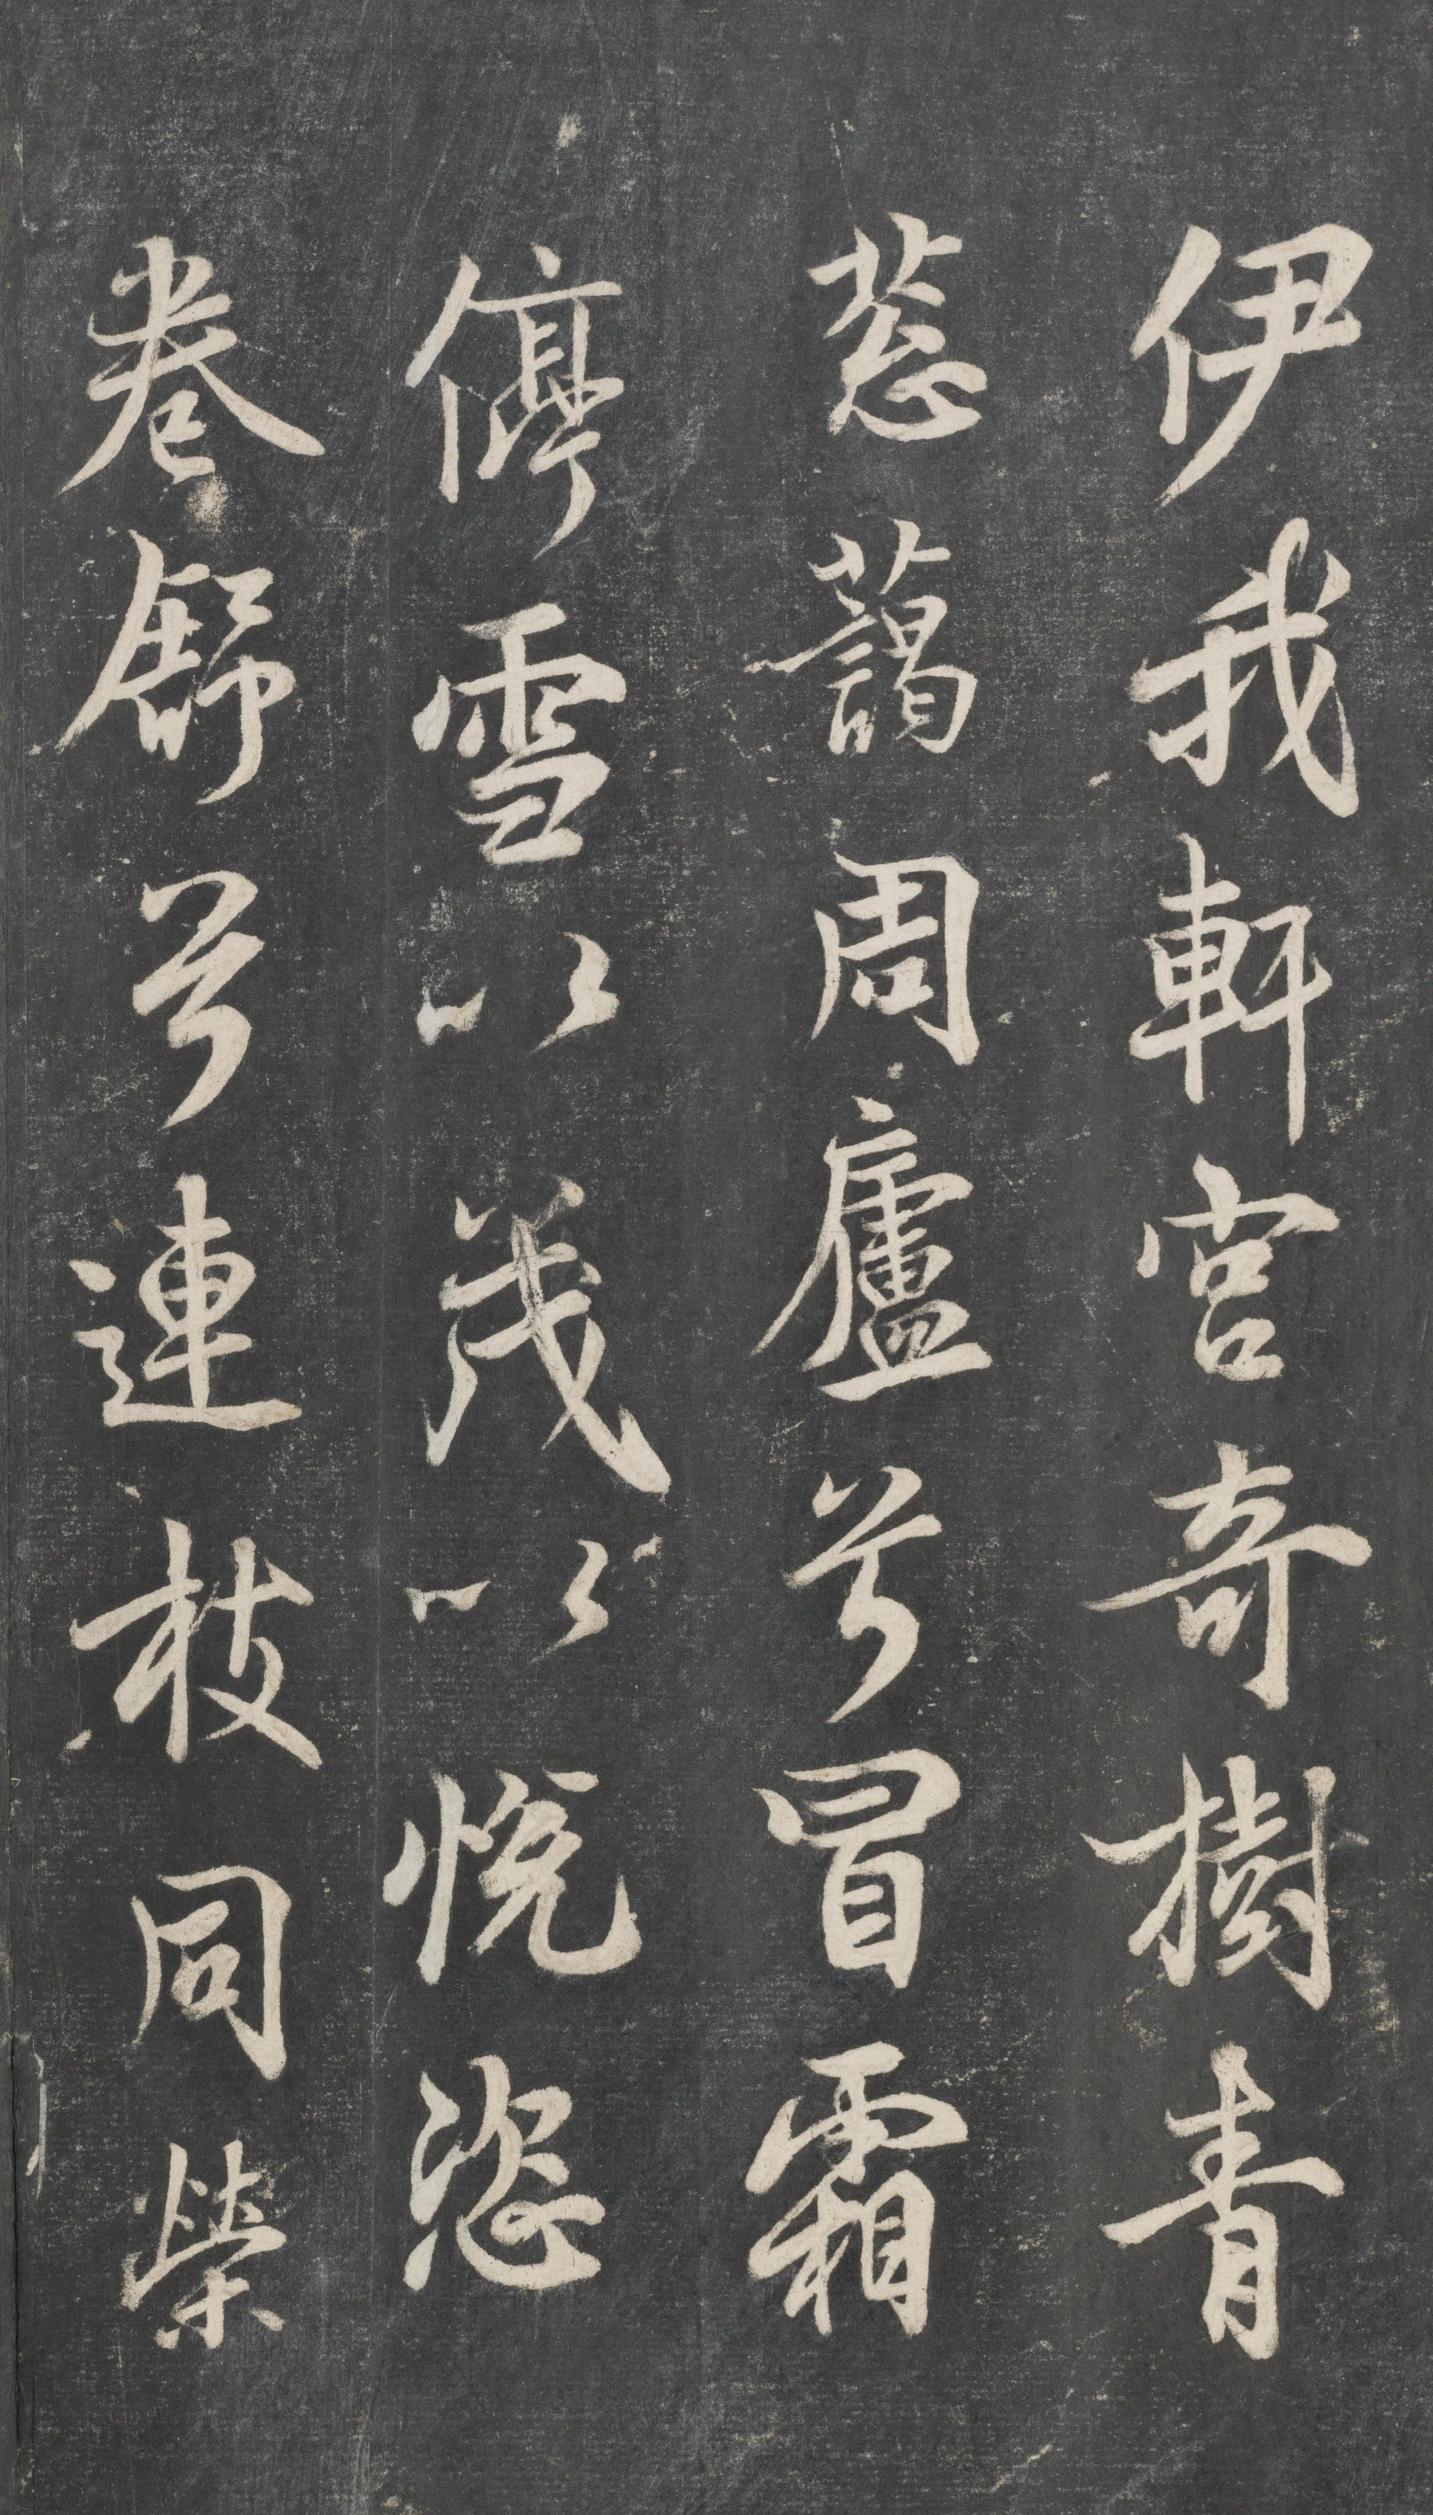 伊我軒宮奇樹青
葱藹周廬兮冒霜
停雪以茂以悅恣
卷舒兮連枝同榮